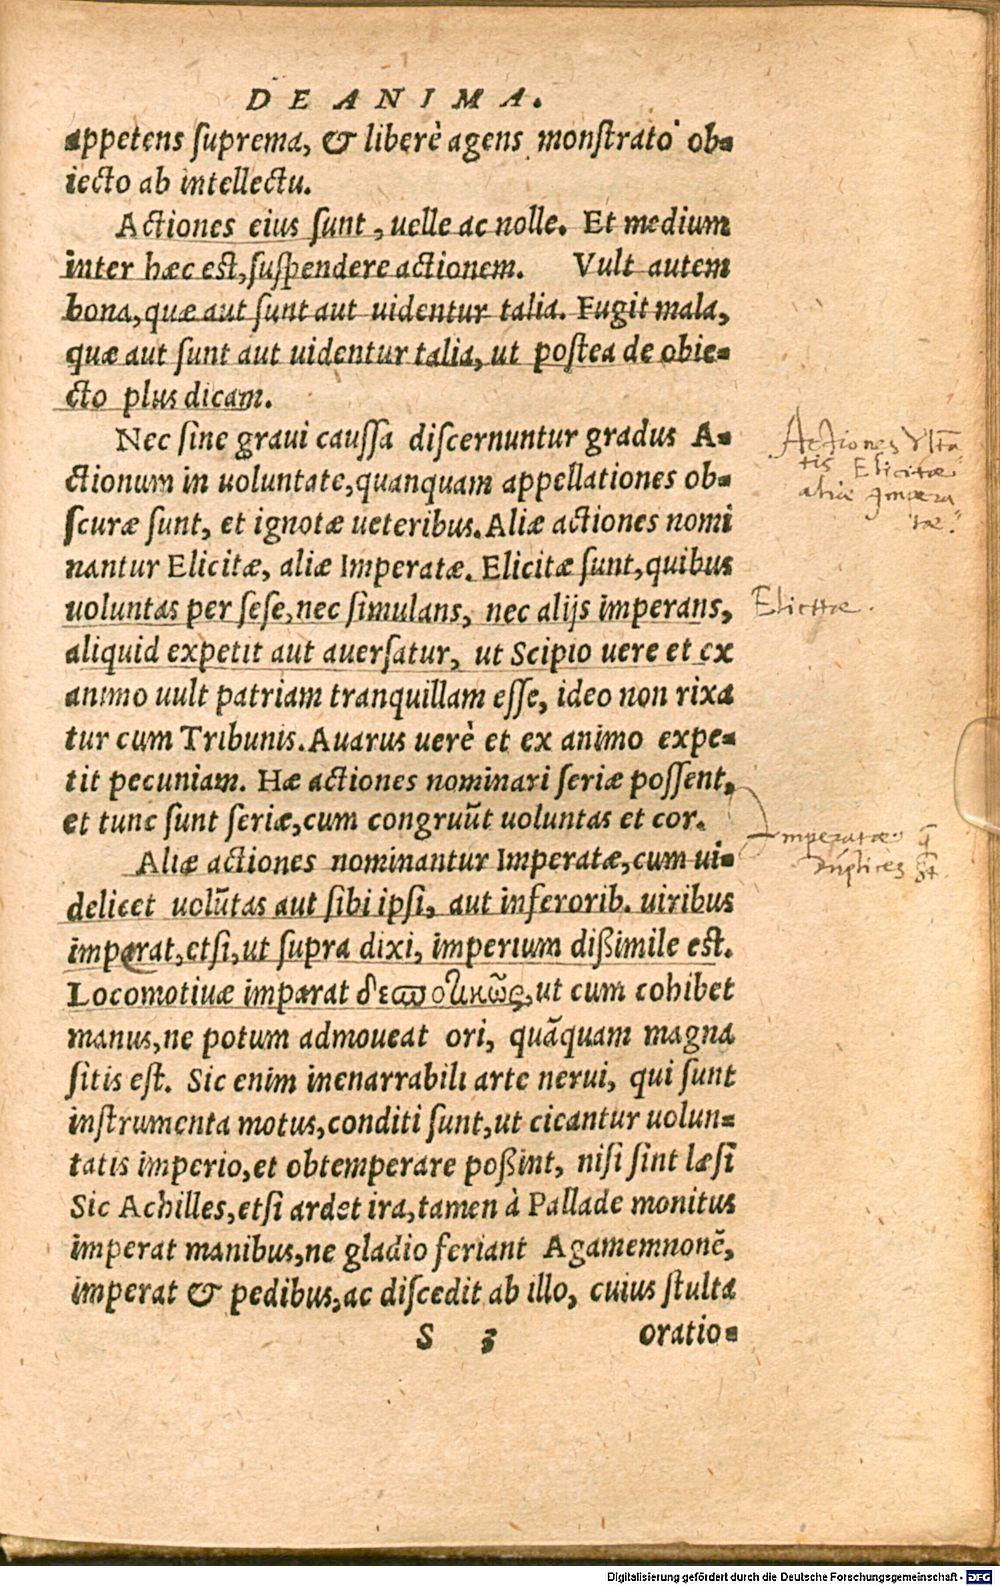 DE ANIMA.
appetens suprema, & liberè agens monstrato ob-
iecto ab intellectu.
Actiones eius sunt, uelle ac nolle. Et medium
inter hæc est, suspendere actionem. Vult autem
bona, quæ aut sunt aut uidentur talia. Fugit mala,
quæ aut sunt aut uidentur talia, ut postea de obie-
cto plus dicam.
Nec sine graui caussa discernuntur gradus A-
ctionum in uoluntate, quanquam appellationes ob-
scuræ sunt, et ignotæ ueteribus. Aliæ actiones nomi
nantur Elicitæ, aliæ Imperatæ. Elicitæ sunt, quibus
uoluntas per sese, nec simulans, nec alijs imperans,
aliquid expetit aut auersatur, ut Scipio uere et ex
animo uult patriam tranquillam esse, ideo non rixa
tur cum Tribunis. Auarus uerè et ex animo expe-
tit pecuniam. Hæ actiones nominari seriæ possent,
et tunc sunt seriæ, cum congruũt uoluntas et cor.
Aliæ actiones nominantur Imperatæ, cum ui-
delicet uolũtas aut sibi ipsi, aut inferorib. uiribus
imparat, etsi, ut supra dixi, imperium dißimile est.
Locomotiuæ imparat δεσποτικῶς, ut cum cohibet
manus, ne potum admoueat ori, quãquam magna
sitis est. Sic enim inenarrabili arte nerui, qui sunt
instrumenta motus, conditi sunt, ut cieantur uolun-
tatis imperio, et obtemperare poßint, nisi sint læsi
Sic Achilles, etsi ardet ira, tamen à Pallade monitus
imperat manibus, ne gladio feriant Agamemnonẽ,
imperat & pedibus, ac discedit ab illo, cuius stulta
S 3 oratio-
Actiones
tis Elicitæ
aliæ Impera
tæ.
Elicitæ.
Imperatæ
duplices
Digitalisierung gefördert durch die Deutsche Forschungsgemeinschaft - DFG